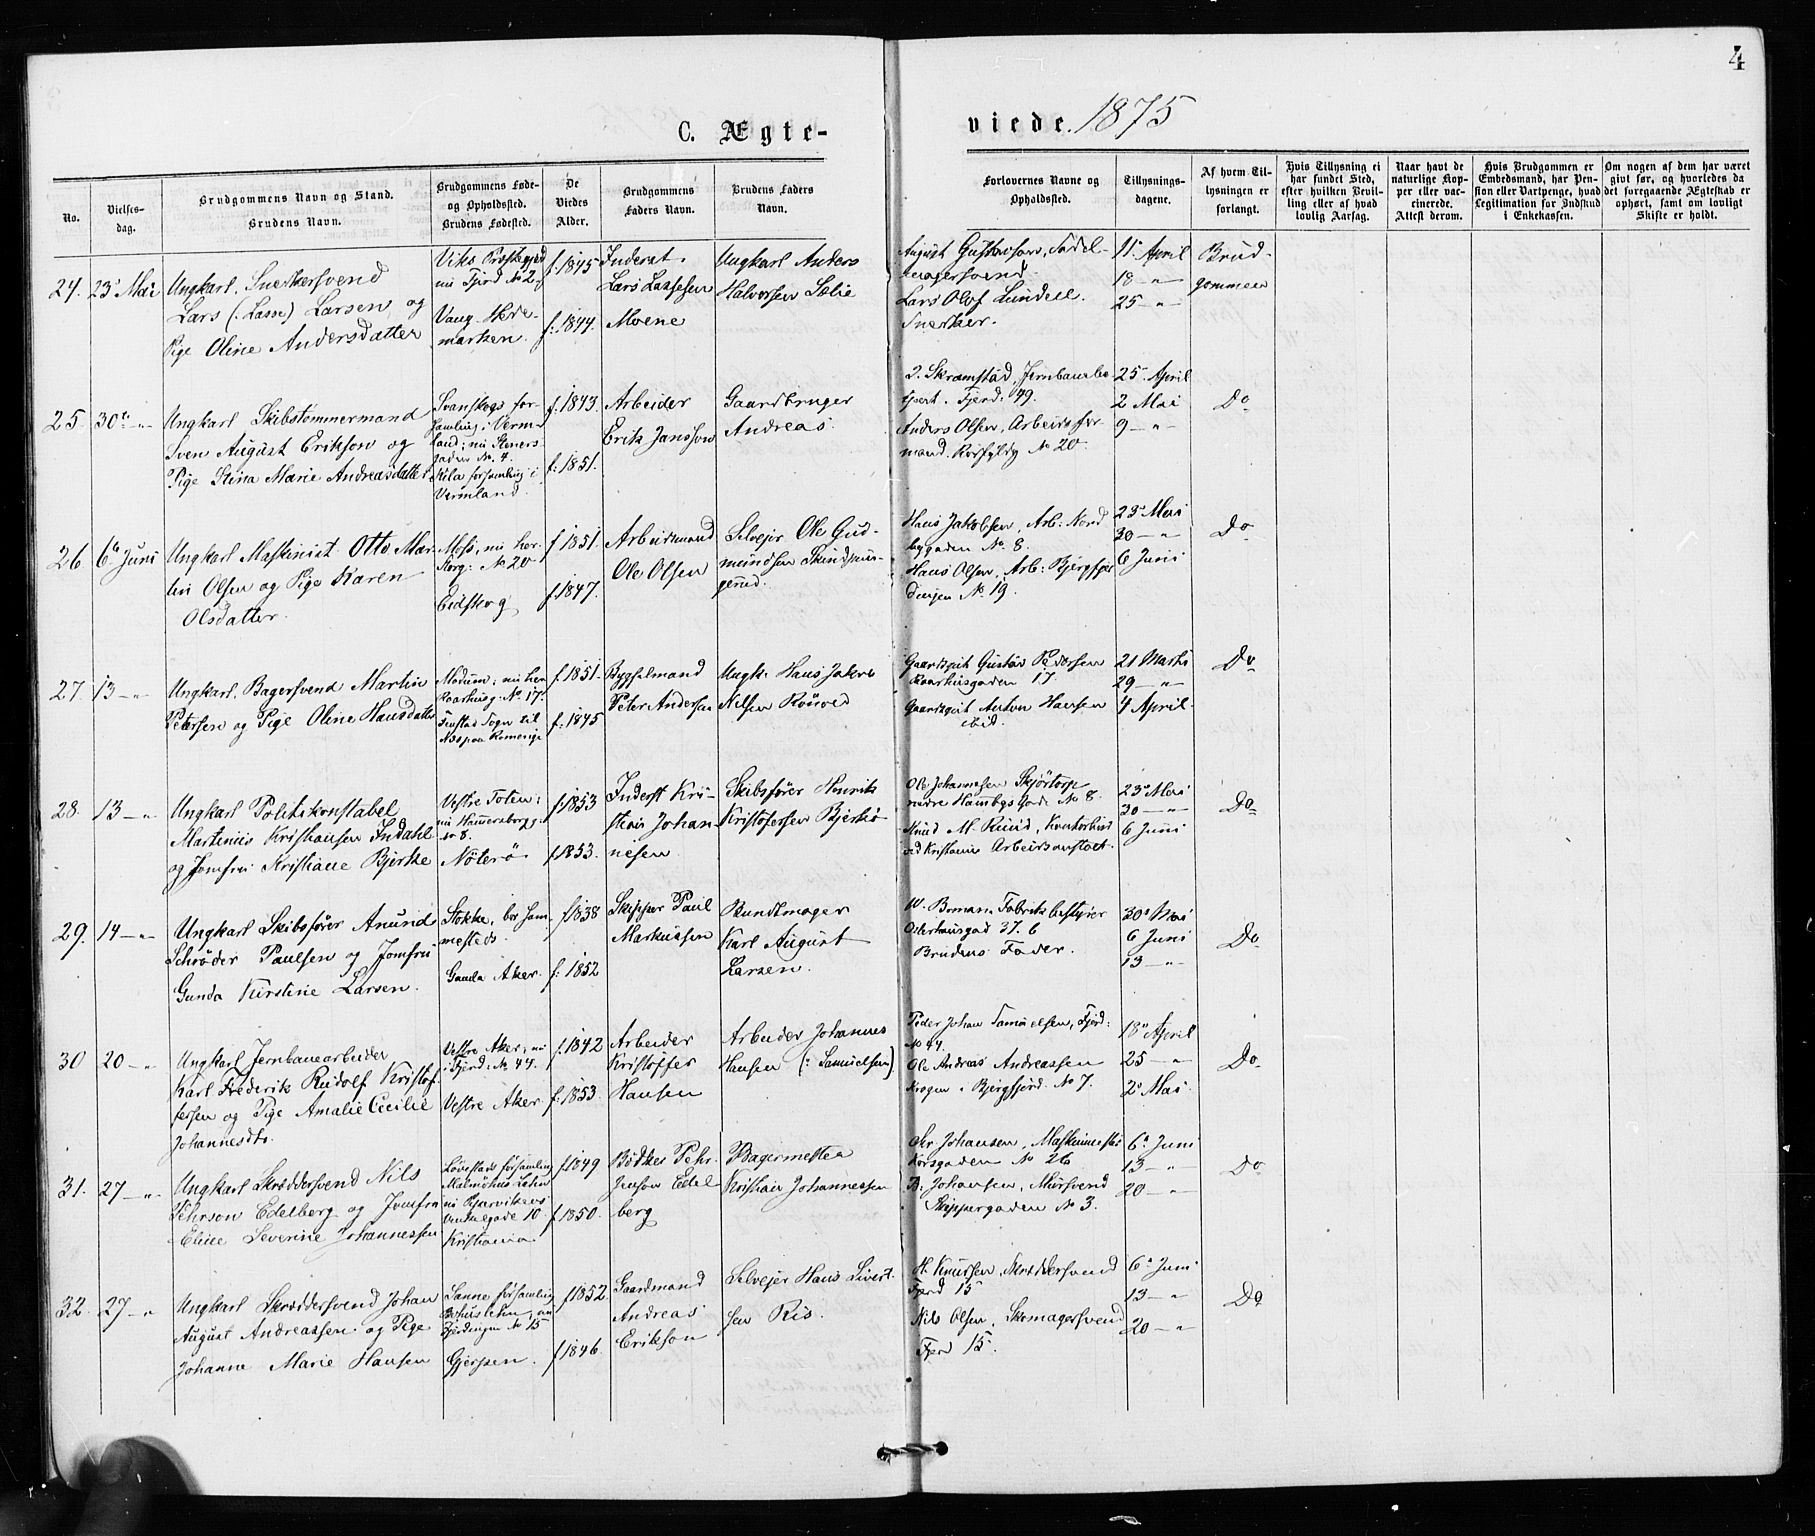 4
C. Ægte-
viede. 1875
No.
Vielses-
dag.
Brudgommens Navn og Stand.
Brudens Navn.
Brudgommens Føde-
og Opholdssted.
Brudens Fødested.
De
Viedes
Alder.
Brudgommens
Faders Navn.
Brudens Faders
Navn.
Forlovernes Navne og
Opholdssted.
Tillysnings-
dagene.
Af hvem Til-
lysningen er
forlangt.
Hvis Tillysning ei
har fundet Sted,
efter hvilken Bevil-
ling eller af hvad
lovlig Aarsag.
Naar havt de
naturlige Kop-
per eller vac-
cinerede.
Attest derom.
Hvis Brudgommen er
Embedsmand, har Pen-
sion eller Vartpenge, hvad
Legitimation for Indskud
i Enkekassen.
Om nogen af dem har været
gift før, og hvorledes da
det foregaaende Ægteskab er
ophørt, samt om lovligt
Skifte er holdt.
24. 23de Mai
Ungkarl. Snekkersvend
Lars (: Lasse) Larsen og
Pige Oline Andersdatter
Viks Præstegjeld
nu Fjerd No 2
Vang. Hede-
marken.
f. 1845
f. 1844.
Inderst.
Lars Lassesen
Moene
Ungkarl Anders
Halvorsen Sælie
August Gustavson, Sadel-
magersvend.
Lars Olof Lundell.
Snekker.
11te April
18 — "
25 — "
Brud-
gommen
25. 30te "
Ungkarl Skibstømmermand
Sven August Erikson og
Pige Stina Marie Andreasdatter
Svanskogs for-
samling i Verm-
land; nu Steners-
gaden No. 4.
Kila forsamling i
Vermland.
f. 1843.
f. 1851.
Arbeider
Erik Jansson
Gaardbruger
Andreas.
Skramstad, Jernbanebe-
tjent. Fjerd. 49.
Anders Olsen, Arbeidsfor-
mand. No 20.
25. April
2 Mai
9 — "
Do
26 6te Juni
Ungkarl Maskinist Otto Mar-
tin Olsen og Pige Karen
Olsdatter.
Moss, nu her
No 20
Eidskog
f 1851.
f. 1847.
Arbeidsmand
Ole Olsen
Selveier Ole Gud-
mundsen
Hans Jakobsen, Arb. Nord-
bygaden No 8.
Hans Olsen, Arb: Bjergfjer-
dingen No 19.
23de Mai
30 — "
6 Juni
Do
27. 13 — "
Ungkarl. Bagersvend Martin
Petersen og Pige Oline Hansdatter
Modum, nu her
Raarhusg. No 17.
Fenstad Sogn til
Næs paa Romerige
f. 1851.
f. 1845
Bygselmand
Peter Andersen
Ungk. Hans Jakob
Nilsen
Gaardsgut Gustav Pedersen
Raarhusgaden 17
Gaardsgut Anton Hansen
ibid.
21 Marts
29 — "
4 April.
Do
28. 13 — "
Ungkarl Politikonstabel
Martinius Kristiansen Indahl
og Jomfru Kristiane Bjerke
Vestre Toten;
nu Hammersborgg.
No 8.
Nøterø
f. 1853
f. 1853.
Inderst Kri-
stian Johan-
nesen
Skibsfører Henrik
Kristofersen Bjerke
Ole Johannesen
nedre Hambgs Gade No 8.
Knud M. Ruud, Kontorbud
ved Kristiania Arbeidsanstalt.
23de Mai
30 — "
6 Juni
Do
29. 14 — "
Ungkarl Skibsfører Anund
Schrøder Paulsen og Jomfru
Gunda Kirstine Larsen.
Stokke, bor sam-
mesteds.
Gamle Aker.
f. 1838
f. 1852
Skipper Paul
Markussen
Bundtmager
Karl August
Larsen.
W. Boman. Fabrikbestyrer
37. 6
Brudens Fader.
30te Mai
6 Juni
13 — "
Do
30 20 — "
Ungkarl Jernbanearbeider
Karl Frederik Rudolf Kristof-
fersen og Pige Amalie Cecilie
Johannesdtr.
Vestre Aker, nu
i Fjerd. No 44.
Vestre Aker.
f. 1842
f. 1853.
Arbeider
Kristoffer
Hansen
Arbeider Johannes
Hansen (: Samuelsen)
Peder Johan Samuelsen, Fjerd:
No 44.
Ole Andreas Andreassen
Krogen i Bjergfjerd. No 7.
18de April
25 — "
2de Mai.
Do
31. 27 — "
Ungkarl Skræddersvend Nils
Pehrson Edelberg og Jomfru
Eline Severine Johannessen
Løvestads forsamling
Malmöhus Lehn
nu Pipervikens
Vinkelgade 10.
Kristiania
f. 1849
f. 1850.
Bødker Pehr
Jenson Edel-
berg
Bagermester
Kristian Johannessen
Johansen, Maskinmester
Korsgaden No 26
B. Johansen, Mursvend
Skippergaden No 3.
6te Juni
13 — "
20 — "
Do
32. 27 — "
Ungkarl Skræddersvend Johan
August Andreassen og Pige
Johanne Marie Hansen
Sanne forsamling
Bohuslehn, nu
Fjerdingen No 15
Gjerpen.
f. 1852.
f 1846.
Gaardmand
Andreas
Erikson
Selveier Hans Sivert-
sen Ris.
H. Knutsen, Skræddersvend
Fjerd 15
Nils Olsen, Skomagersvend
Fjerd 15.
6te Juni
13 — "
20 — "
Do